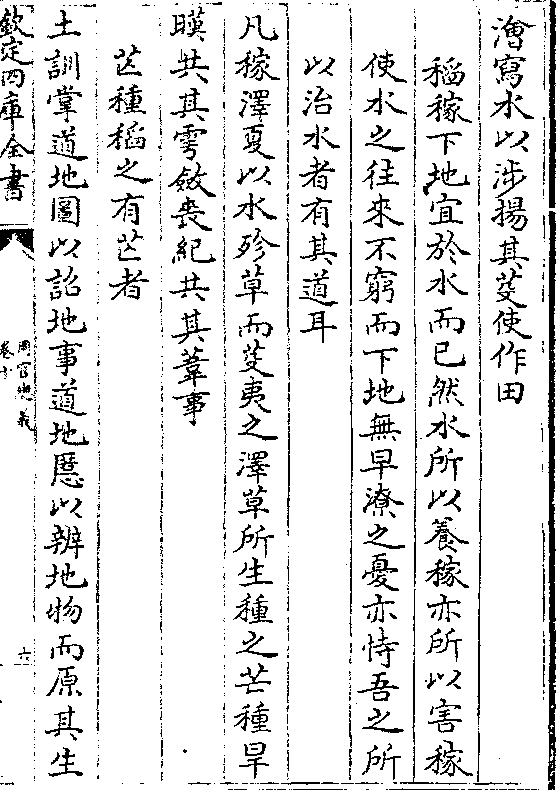 澮寫水以涉揚其芟使作田
稻稼下地宜於水而已然水所以養稼亦所以害稼
使水之往來不窮而下地無旱潦之憂亦恃吾之所
以治水者有其道耳
凡稼澤夏以水殄草而芟夷之澤草所生種之芒種旱
暵共其雩斂喪紀共其葦事
芒種稻之有芒者
土訓掌道地圖以詔地事道地慝以辨地物而原其生
欽定四庫全書
周官總義
卷十
六